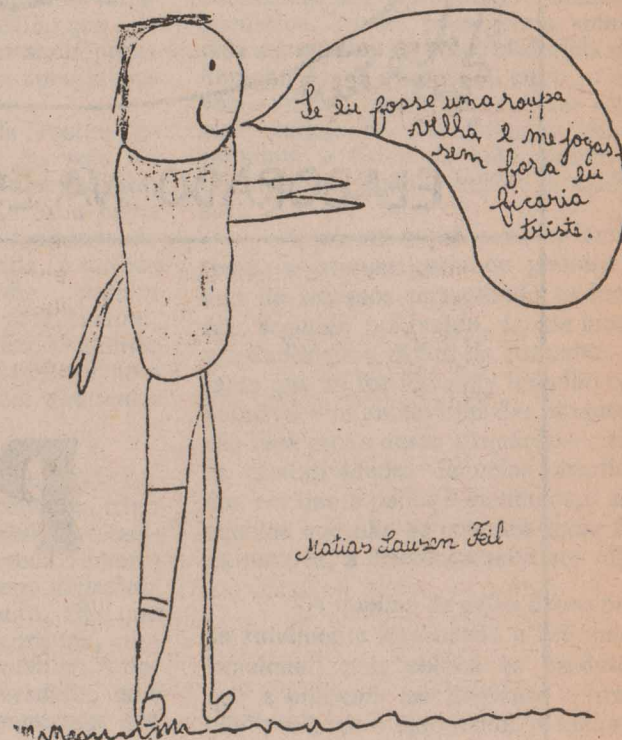 Se eu fosse uma roupa
velha e me jogas-
sem fora eu
ficaria
triste.
Matias Lauzen Feil